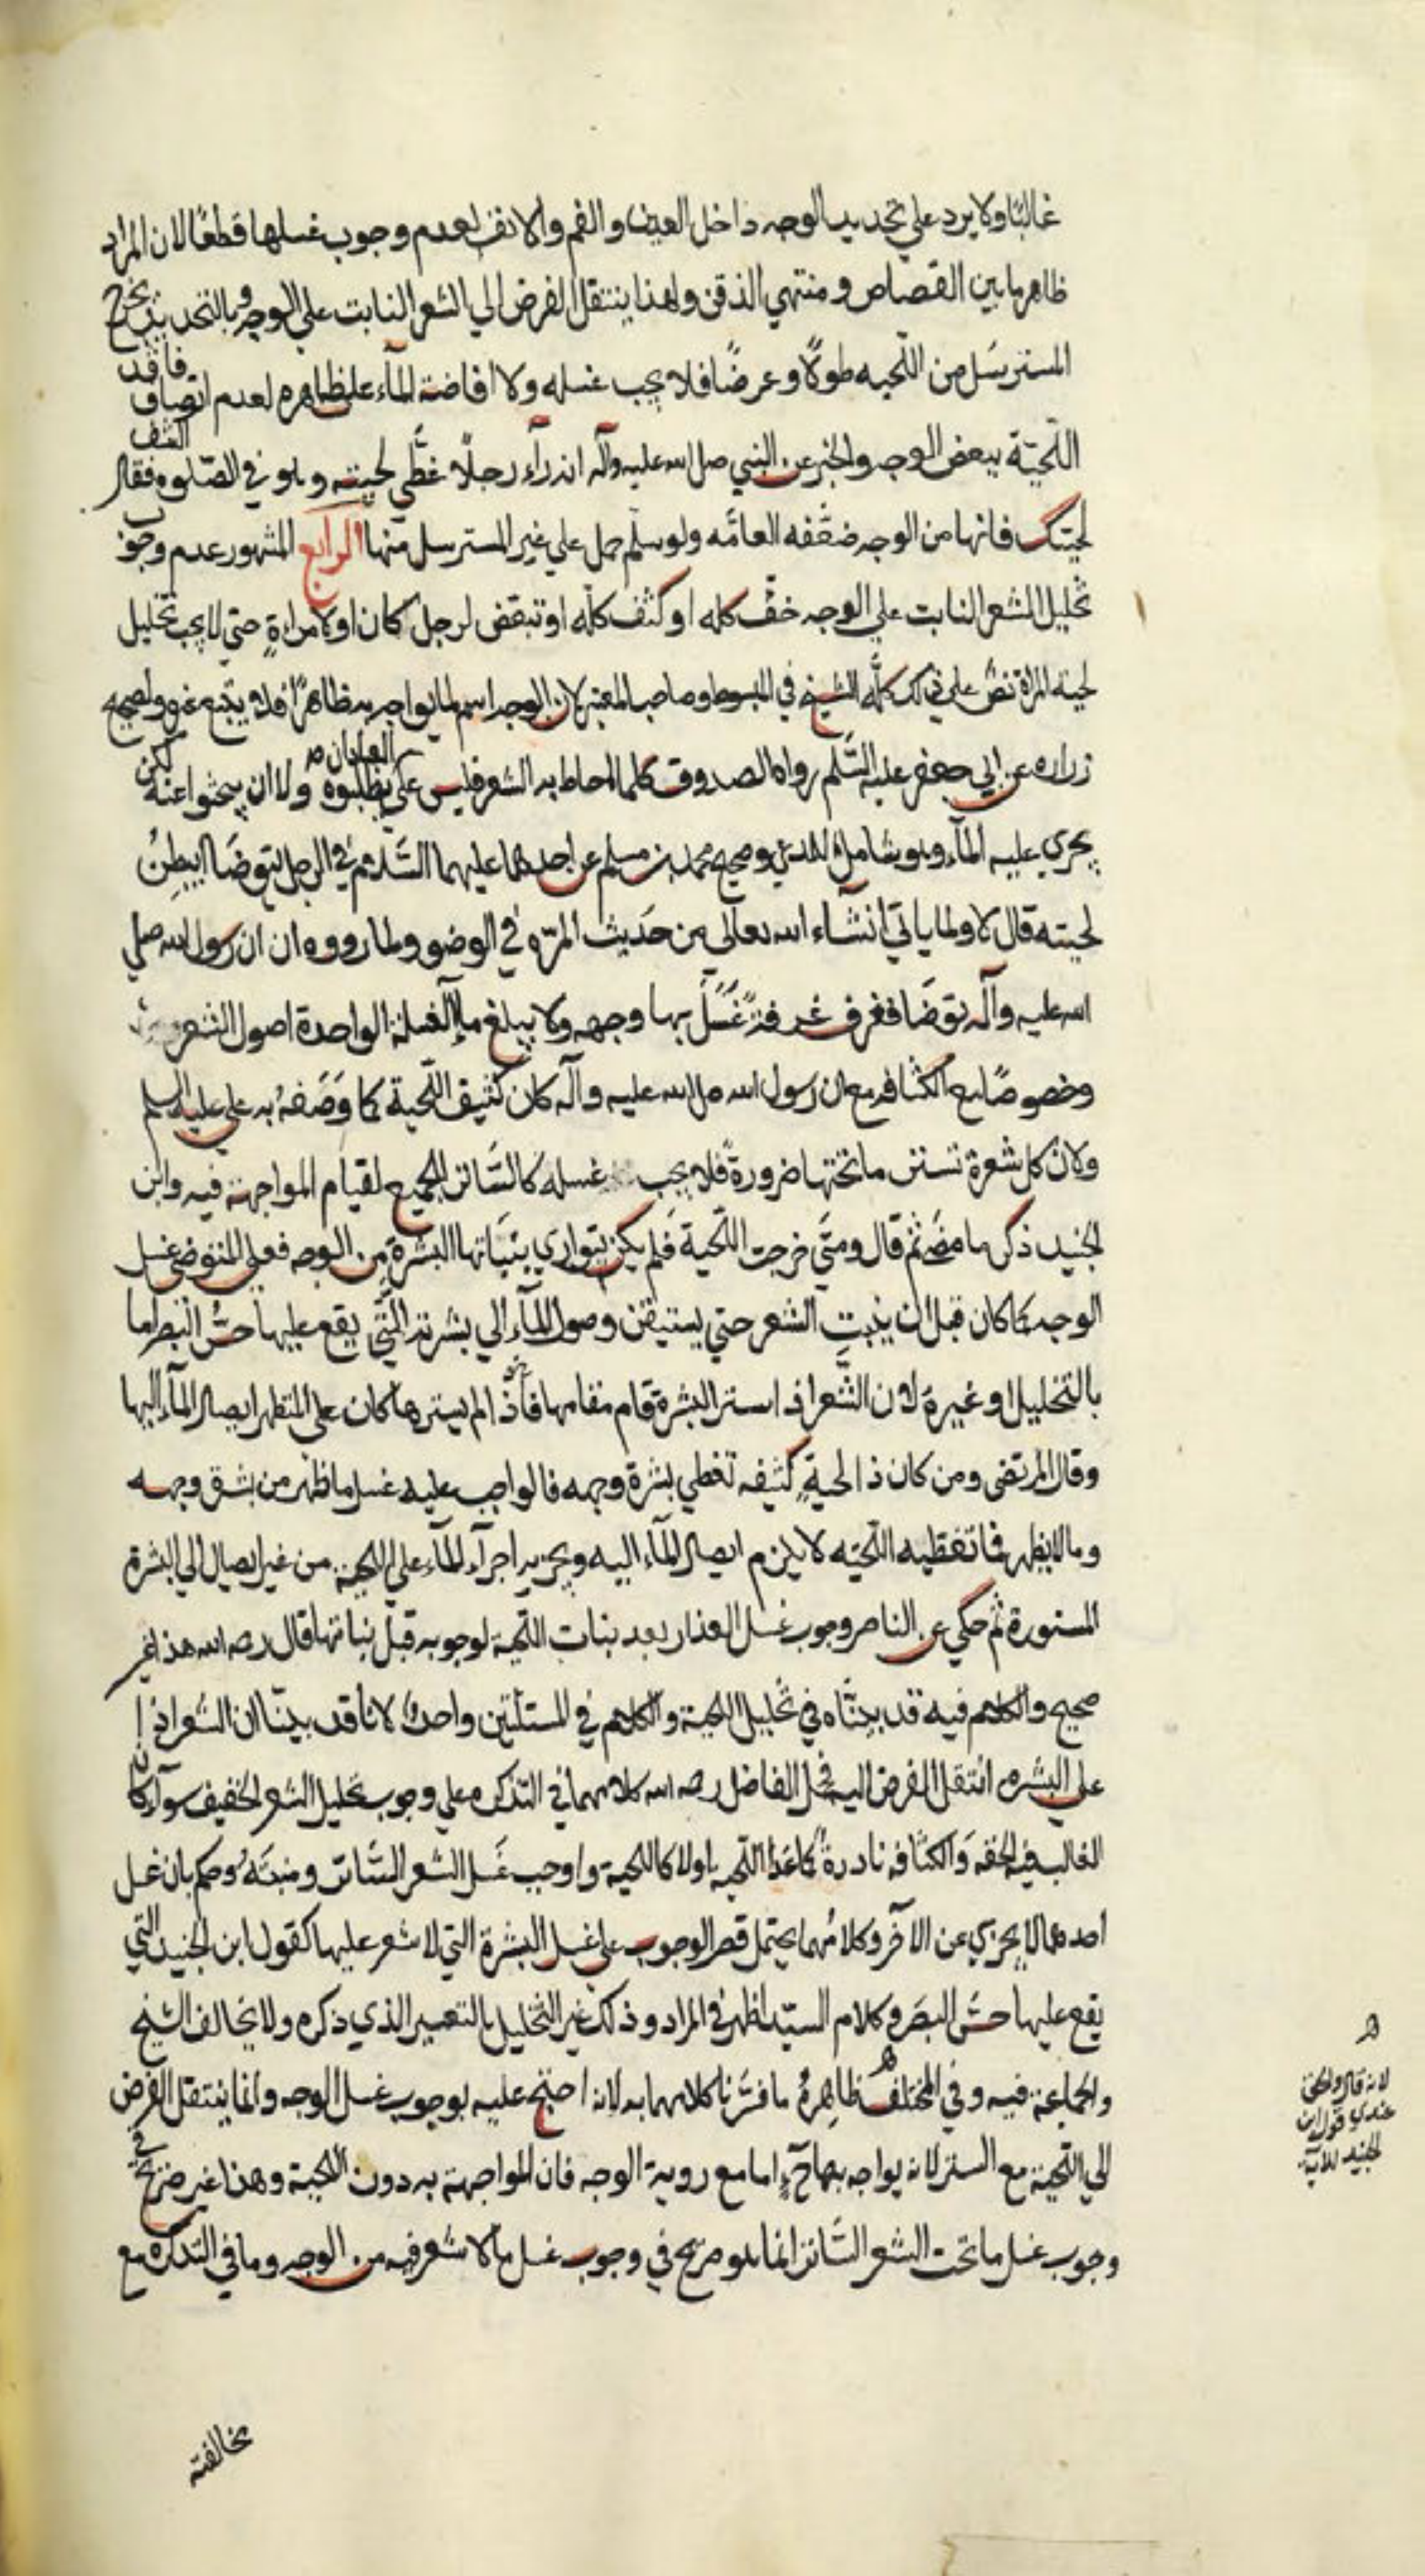 غالبًا ولا يرد على تحديد الوجه داخل العين و الفم والانف لعدم وجوب غسلها قطعًا لان المراد
ظاهر ما بين القصاص و منتهي الذقن ولهذا ينتقل الفرض الي الشعر النابت علي الوجه وبالتحديد يخرج
المسترسَل من اللّحيه طولًا وعرضًا فلا يجب غسله ولا افاضة المآء علي ظاهره لعدم اتصاف فاقد
اللّحيّة ببعض الوجه والخبر عن النبي صلى الله عليه وآله انه رآء رجلًا غطّي لحيته وهو في الصّلوه فقال اكشف
لحيتك فانها من الوجه ضعّفه العامّه ولو سلّم حمل علي غير المسترسل منها الرابع المشهور عدم وجوب
تخليل الشعر النابت علي الوجه خفّ كله او كثف كلّه او تبعّض لرجل كان او لامراةٍ حتى لا يجب تخليل
لحية المراة نصّ علي ذلك كلّه الشيخ في المبسوط وصاحب المعتبر لان الوجه اسم لما يواجه به ظاهرًا فلا يتبع غيره ولصحيحه
زراره عن ابي جعفر عليه السَّلم رواه الصدوق كلما احاط به الشعر فليس علي العباد ان يطلبوه ولا ان يبحثوا عنه لكن
يجري عليه المآء وهو شامل وصحيح محمد بن مسلم عن احدهما عليهما السّلام في الرجل يتوضّا ايبطِنُ
لحيته قال لا ولما ياتي انشآء الله تعالي من حَديث المرّه في الوضو ولما رووه ان رسول الله صلي
الله عليه وآله توضّا فغرف غرفةً غَسَلَ بها وجهه ولا يبلغ مآء الغسلة الواحدة اصول الشعر
وخصوصًا مع الكثافه مع ان رسول الله صلى الله عليه وآله كان كثيف اللّحية كما وَصَفهُ به علي عليه السلم
ولان كل شعرة تستتر ما تحتها ضرورةً فلا يجب غسله كالسَّاتر الجميع لقيام المواجهة فيه وابن
الجنيد ذكر ما مضَى ثم قال ومتَي خرجت اللّحية فلم يكن يتواري بنَباتها البشرة من الوجه فعلي المتوضي غسل
الوجه كما كان قبل ان ينبت الشعر حتي يستيقن وصول المآء الي بشرته التي يقع عليها حسّ البصر اما
بالتخليل او غيره لان الشّعر اذا ستر البشرة قام مقامها فاذا لم يسترها كان علي المتطهر ايصال المآء اليها
وقال المرتضى ومن كان ذا لحيةٍ كثيفه تغطي بشرة وجهه فالواجب عليه غسل ما ظهر من بشرة وجهه
وما لا يظهر مما تغطيه اللّحيه لا يلزم ايصال المآء اليه ويجزيه اجرآء المآء علي اللحية من غير ايصال الي البشرة
المستورة ثم حكي عن الناصر وجوب غسل العذار بعد نبات اللّحية لوجوبه قبل نباتها قال رحمه الله هذا غير
صحيح والكلام فيه قد بيّنّاه في تخليل اللحية والكلام في المسئلتين واحدٌ لانّا قد بينّا ان الشعر اذا
علي البشره انتقل الفرض اليه فحمل الفاضل رحمه الله كلامهما في التذكره علي وجوب تخليل الشعر الخفيف سوآء كان
الغالب فيه الخفّه وَالكثافه نادرةً كما عدا اللّحيه اولا كاللحية واوجب غَسل الشعر السَّاتر ومنبتَهُ وحكم بان غسل
احدهما لا يجزي عن الآخر وكلامُهما يحتمل قصر الوجوب علي غسل البشرة التي لا شعر عليها كقول ابن الجنيد التي
يقع عليها حسّ البصَر وكلام السيّد اظهر في المراد وذلك غير التخليل بالتفسير الذي ذكره ولا يخالف الشيخ
والجماعة فيه وفي المختلف ظاهرهُ ما فسّرنا كلامهما به لانه احتج عليه بوجوب غسل الوجه وانما ينتقل الفرض
الي اللّحية مع الستر لانه يواجه بها حٓ اما مع روية الوجه فان المواجهة به دون اللحية وهذا غير صريح في
وجوب غسل ما تحت الشعر السَّاتر انما هو صريح في وجوب غسل ما لا شعر فيه من الوجه وما في التذكره مع
مخالفته
لانه قال والحق
عندي قول ابن
الجنيد للآية